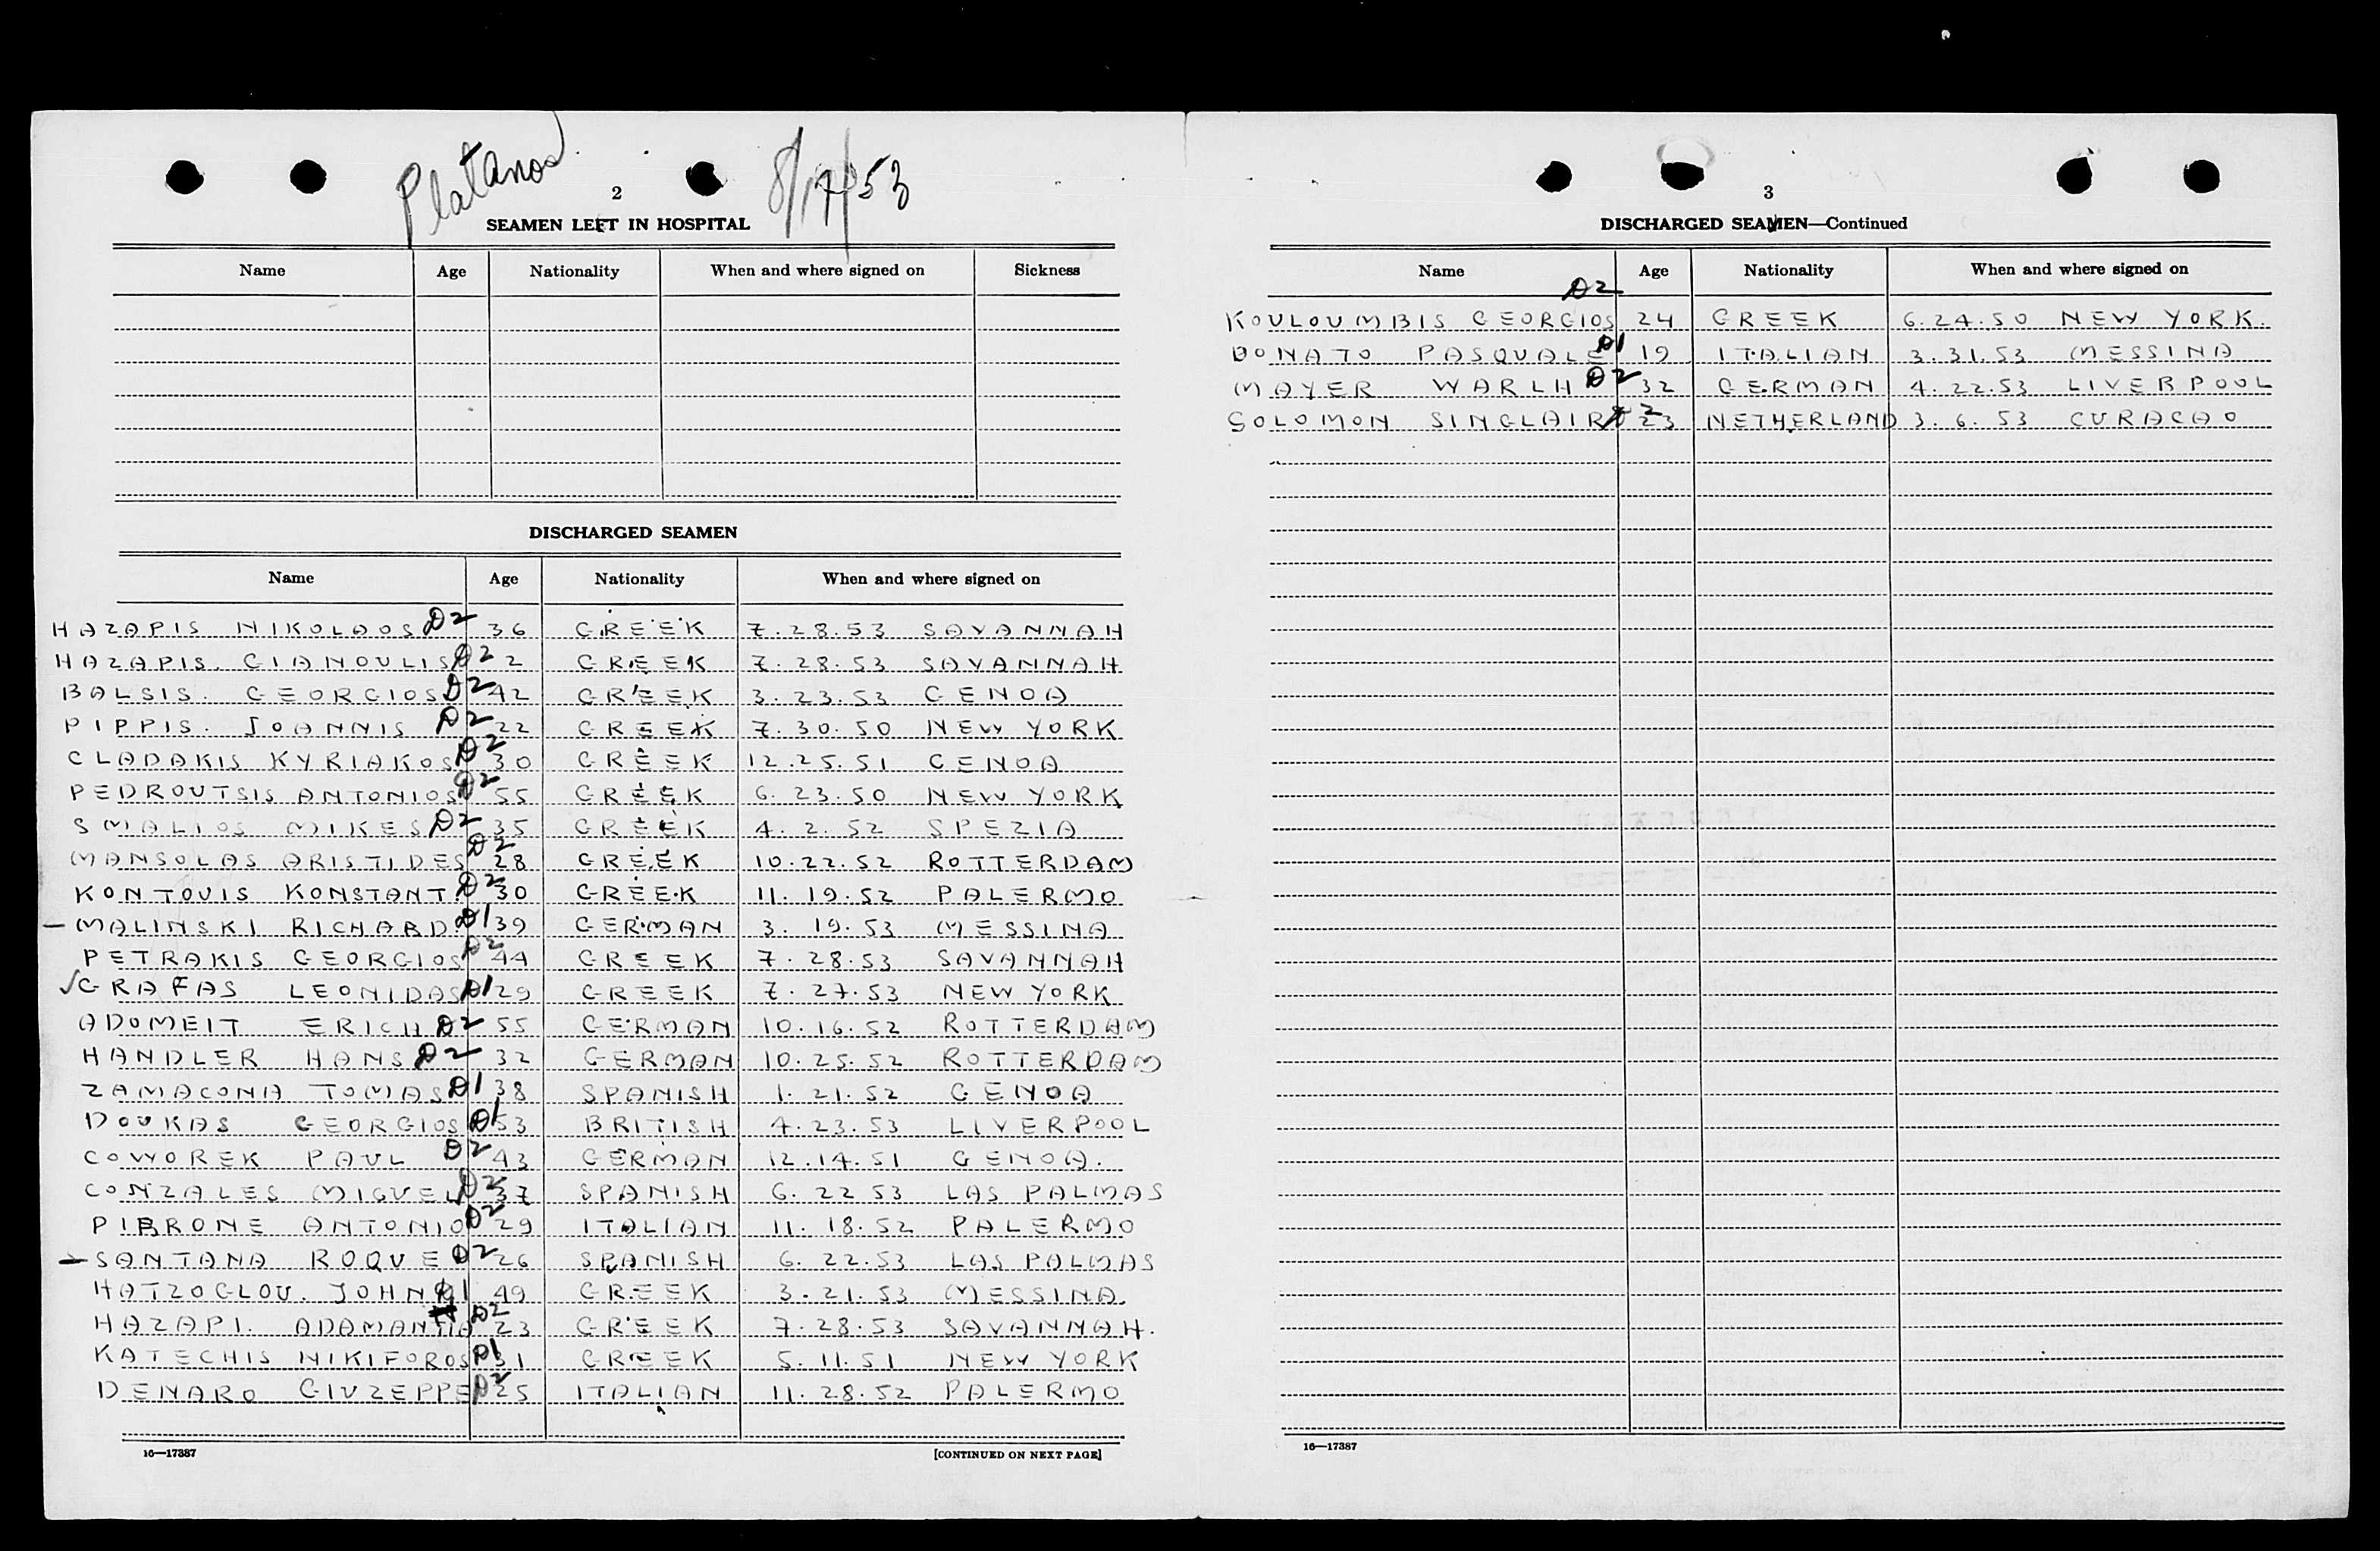 Platanos
8/17/53
2
SEAMEN LEFT IN HOSPITAL
Name Age Nationality When and where signed on Sickness
DISCHARGED SEAMEN
Name Age Nationality When and where signed on
HAZAPIS NIKOLAOS D2 36 GREEK 7.28.53 SAVANNAH
HAZAPIS. GIANOULIS D2 2 GREEK 7.28.53 SAVANNAH
BALSIS. GEORGIOS D2 42 GREEK 3.23.53 GENOA
PIPPIS. JOANNIS D2 22 GREEK 7.30.50 NEW YORK
CLADAKIS KYRIAKOS D2 30 GREEK 12.25.51 GENOA
PEDROUTSIS ANTONIOS D2 55 GREEK 6.23.50 NEW YORK
SMALIOS MIKES D2 35 GREEK 4.2.52 SPEZIA
MANSOLAS ARISTIDES D2 28 GREEK 10.22.52 ROTTERDAM
KONTOUIS KONSTANT. D2 30 GREEK 11.19.52 PALERMO
— MALINSKI RICHARD. D1 39 GERMAN 3.19.53 MESSINA
PETRAKIS GEORGIOS D2 44 GREEK 7.28.53 SAVANNAH
✓ GRAFAS LEONIDAS D1 29 GREEK 7.27.53 NEW YORK
ADOMEIT ERICH D2 55 GERMAN 10.16.52 ROTTERDAM
HANDLER HANS D2 32 GERMAN 10.25.52 ROTTERDAM
ZAMACONA TOMAS D1 38 SPANISH 1.21.52 GENOA
DOUKAS GEORGIOS D1 53 BRITISH 4.23.53 LIVERPOOL
COWOREK PAUL D2 43 GERMAN 12.14.51 GENOA.
CONZALES MIGUEL D2 37 SPANISH 6.22 53 LAS PALMAS
PIBRONE ANTONIO D2 29 ITALIAN 11.18.52 PALERMO
— SANTANA ROQUE D2 26 SPANISH 6.22.53 LAS PALMAS
HATZOGLOU. JOHN D1 49 GREEK 3.21.53 MESSINA.
HAZAPI. ADAMANTIA D2 23 GREEK 7.28.53 SAVANNAH.
KATECHIS NIKIFOROS D1 31 GREEK 5.11.51 NEW YORK
DENARO GIUZEPPE D2 25 ITALIAN 11.28.52 PALERMO
16—17387
[CONTINUED ON NEXT PAGE]
3
DISCHARGED SEAMEN—Continued
Name Age Nationality When and where signed on
KOULOUMBIS GEORGIOS D2 24 GREEK 6.24.50 NEW YORK.
DONATO PASQUALE D1 19 ITALIAN 3.31.53 MESSINA
MAYER WARLH D2 32 GERMAN 4.22.53 LIVERPOOL
SOLOMON SINGLAIR D2 23 NETHERLAND 3.6.53 CURACAO
16—17387